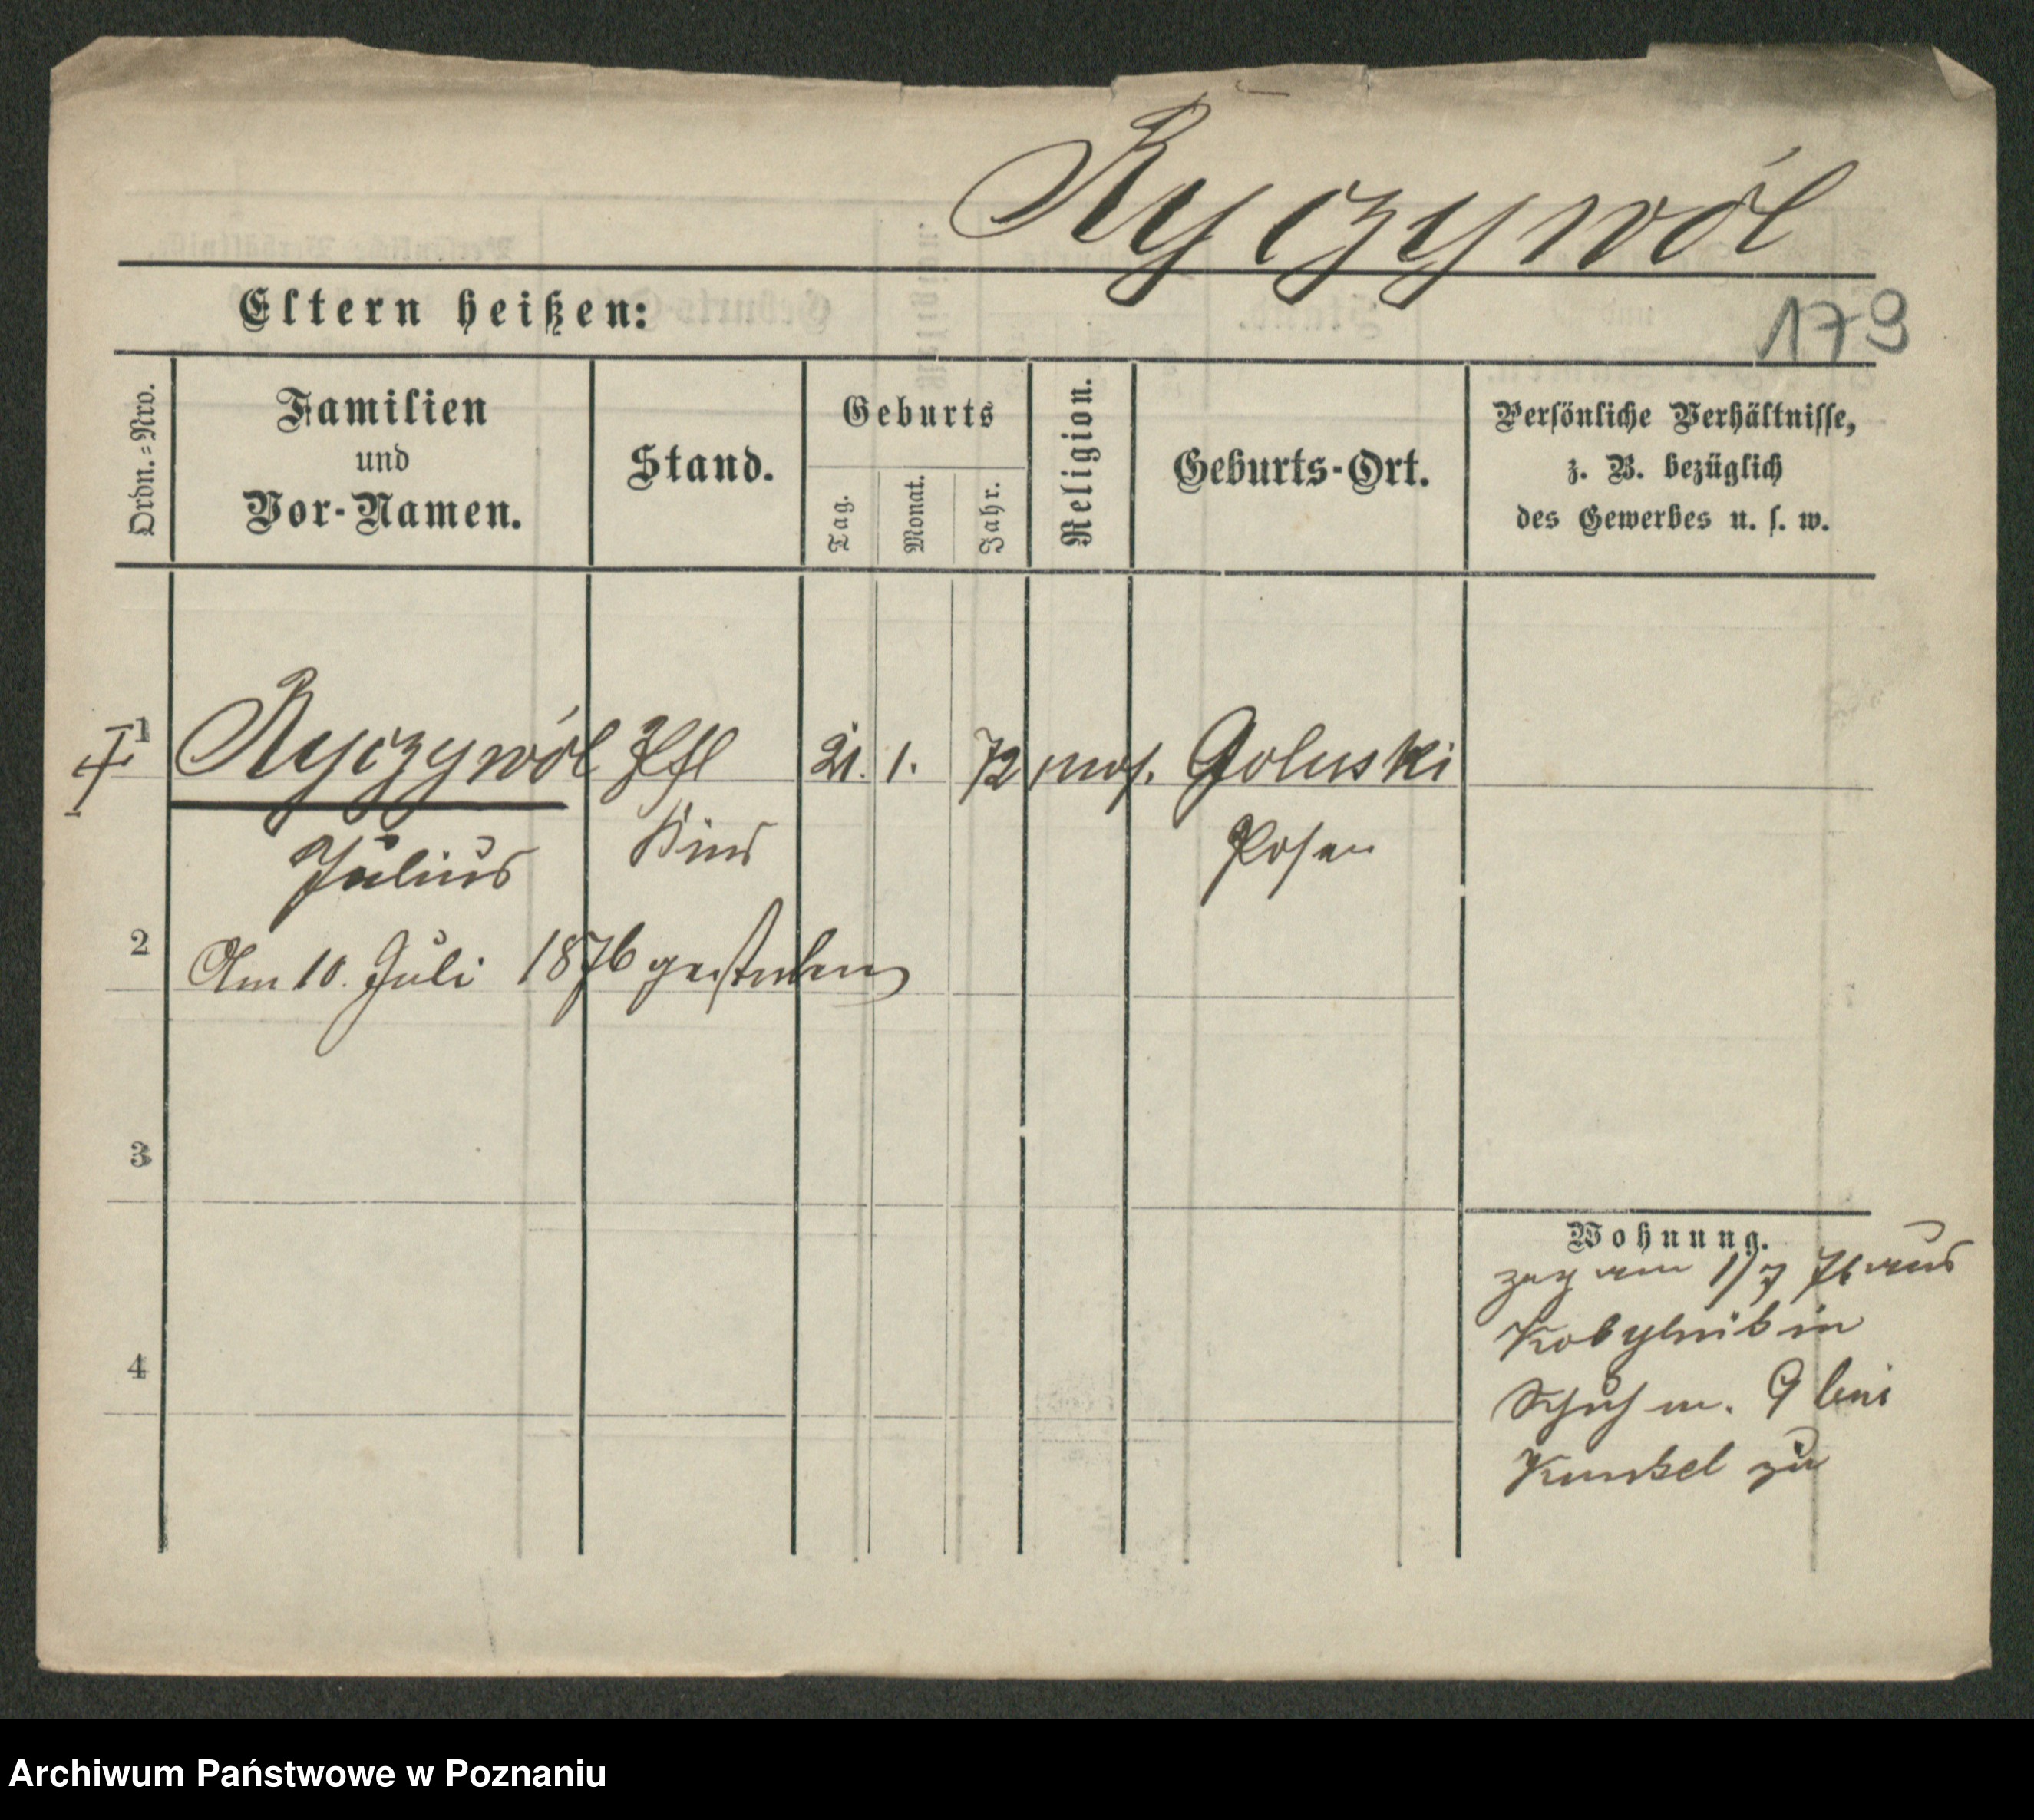 Ryczywól
179
Eltern heißen:
Ordn.-Nro.
Familien
und
Vor-Namen.
Stand.
Geburts
Tag.
Monat.
Jahr.
Religion.
Geburts-Ort.
Persönliche Verhältnisse,
z. B. bezüglich
des Gewerbes u. s. w.
1 Ryczywól 21. 1. 72 mos. Goluski
Julius Kind Posen
2 Am 10. Juli 1876 gestorben
3
Wohnung.
zog am 1/7 76 aus
4
Schuhm. 9 bei
Kunkel zu
Archiwum Państwowe w Poznaniu